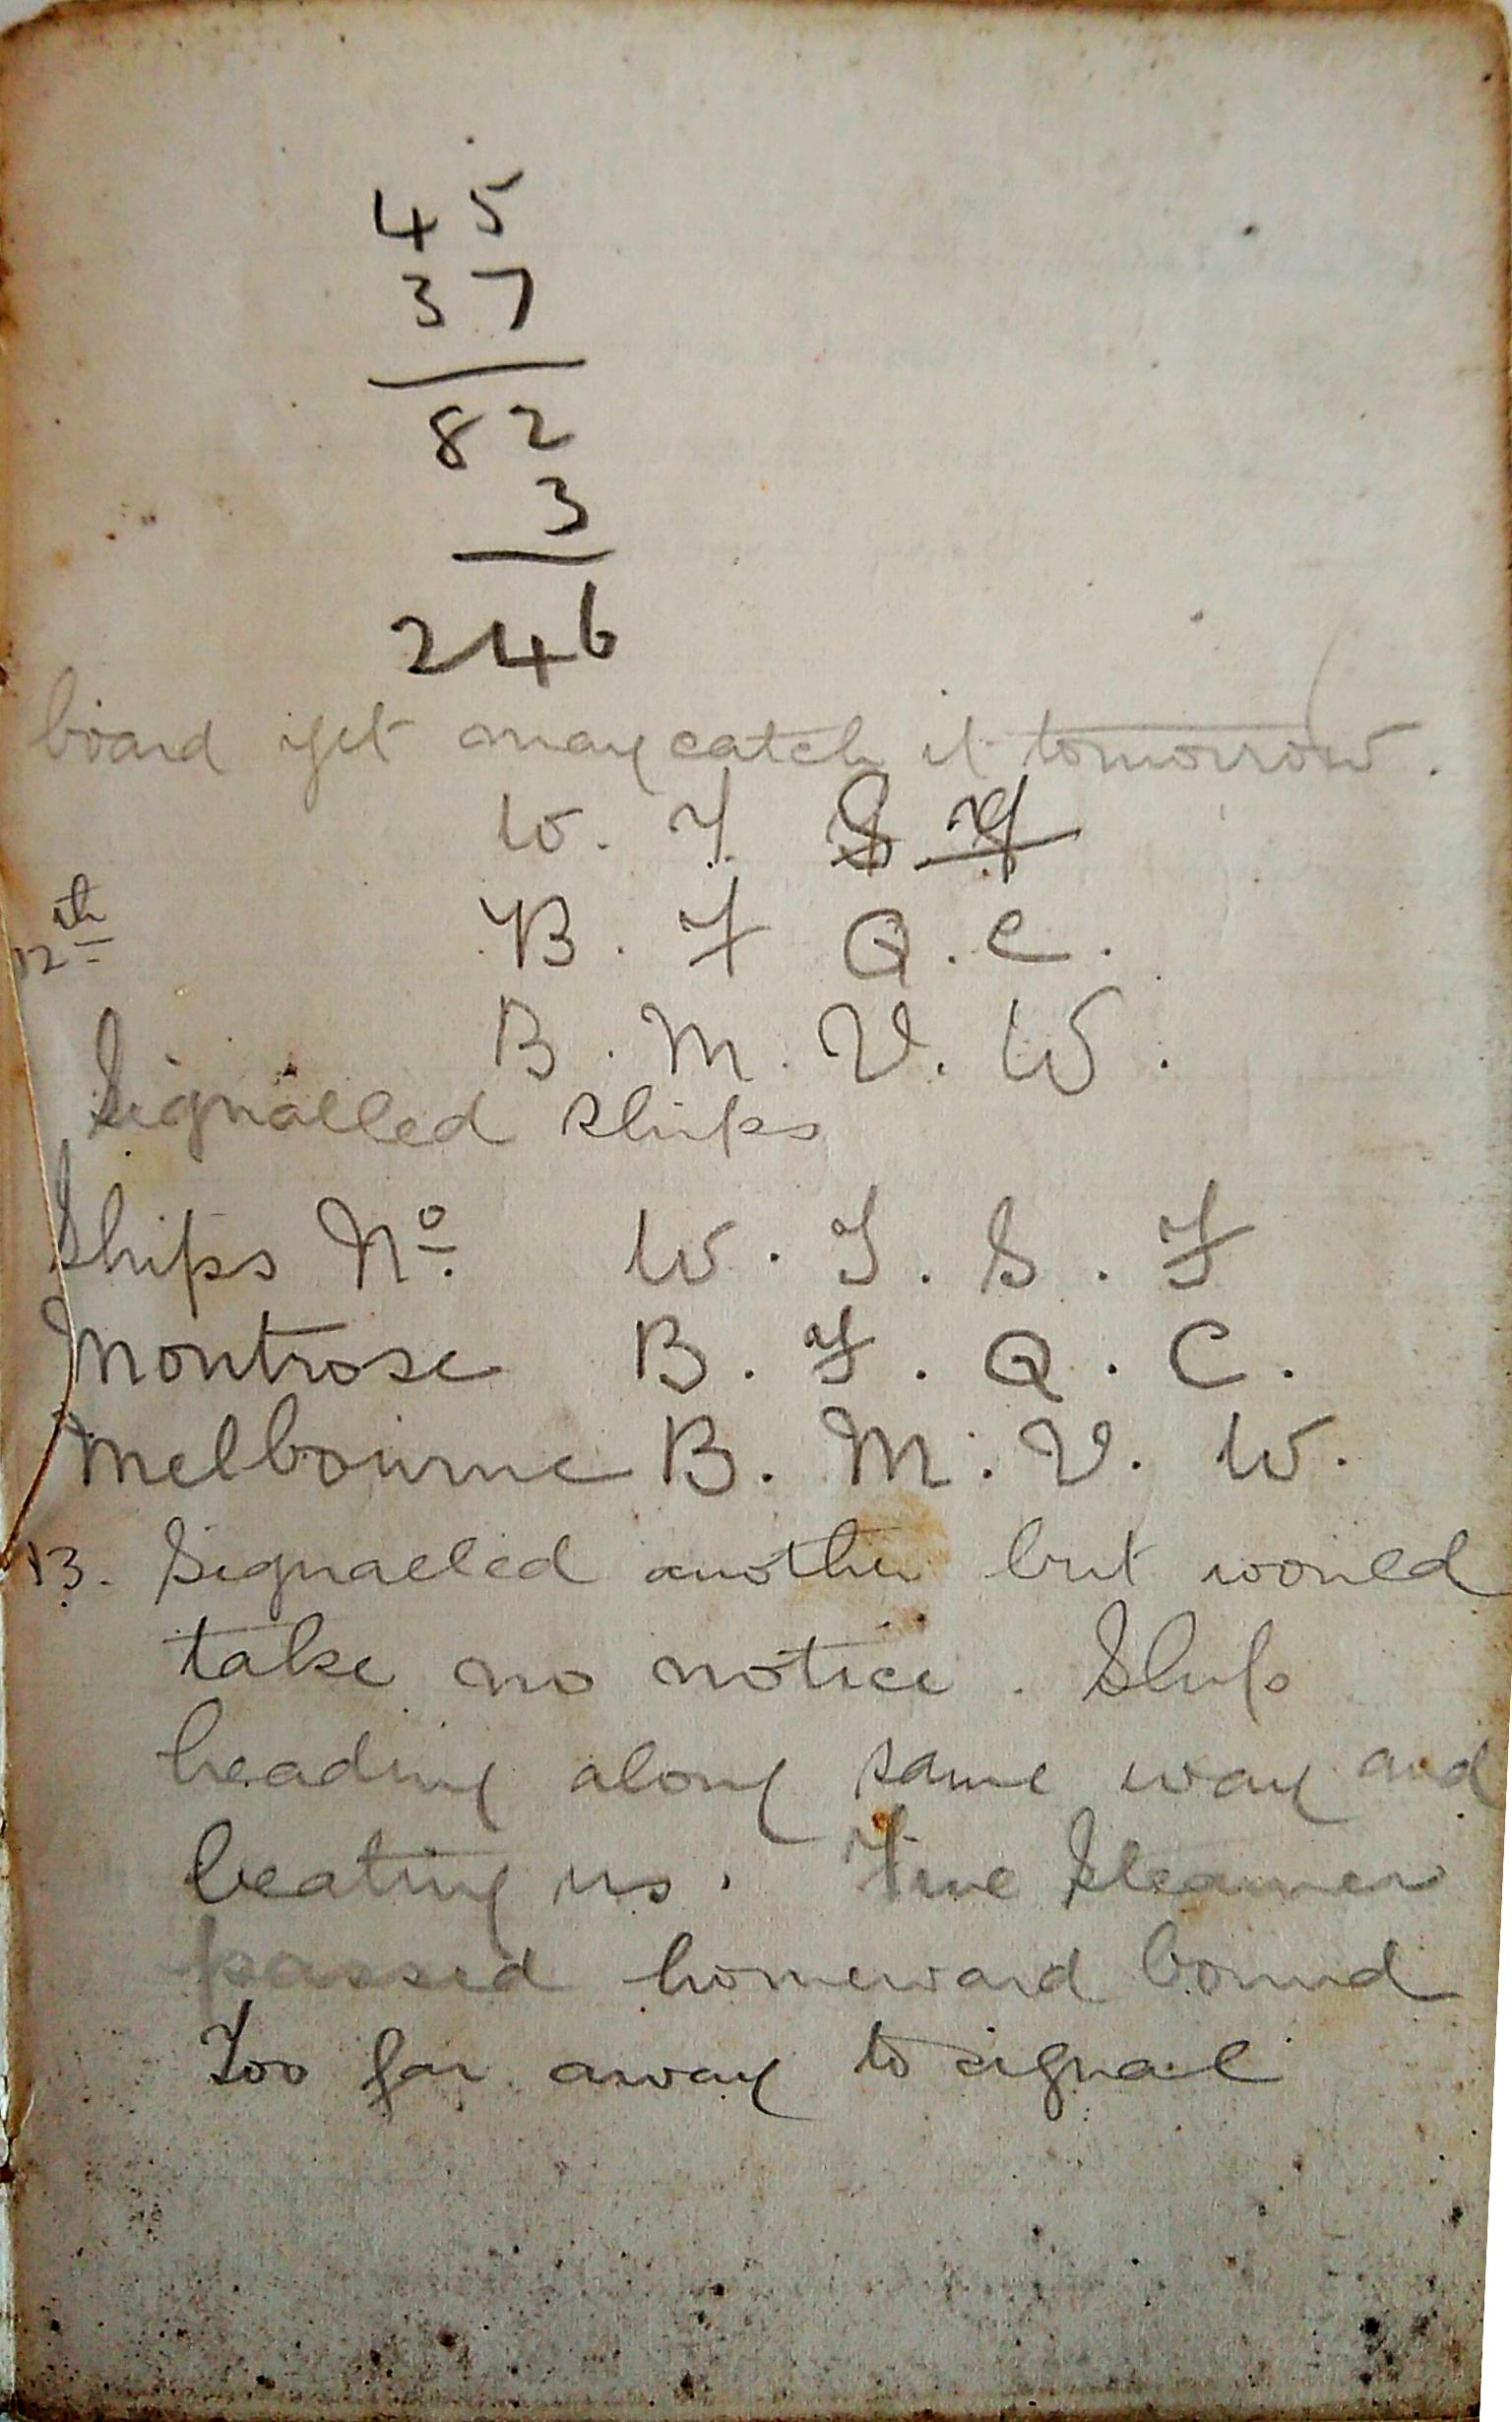 45
37
82
3
246
board yet may catch it tomorrow.
W. T S F
12th B. F Q. C.
B. M. V. W.
Signalled ships
Ships No. W. T. S. F
Montrose B. F. Q. C.
Melbourne B. M. V. W.
13. Signalled another but would
take no notice. Ship
heading along same way and
beating us. Fine Steamer
passed homeward bound
Too far away to signal